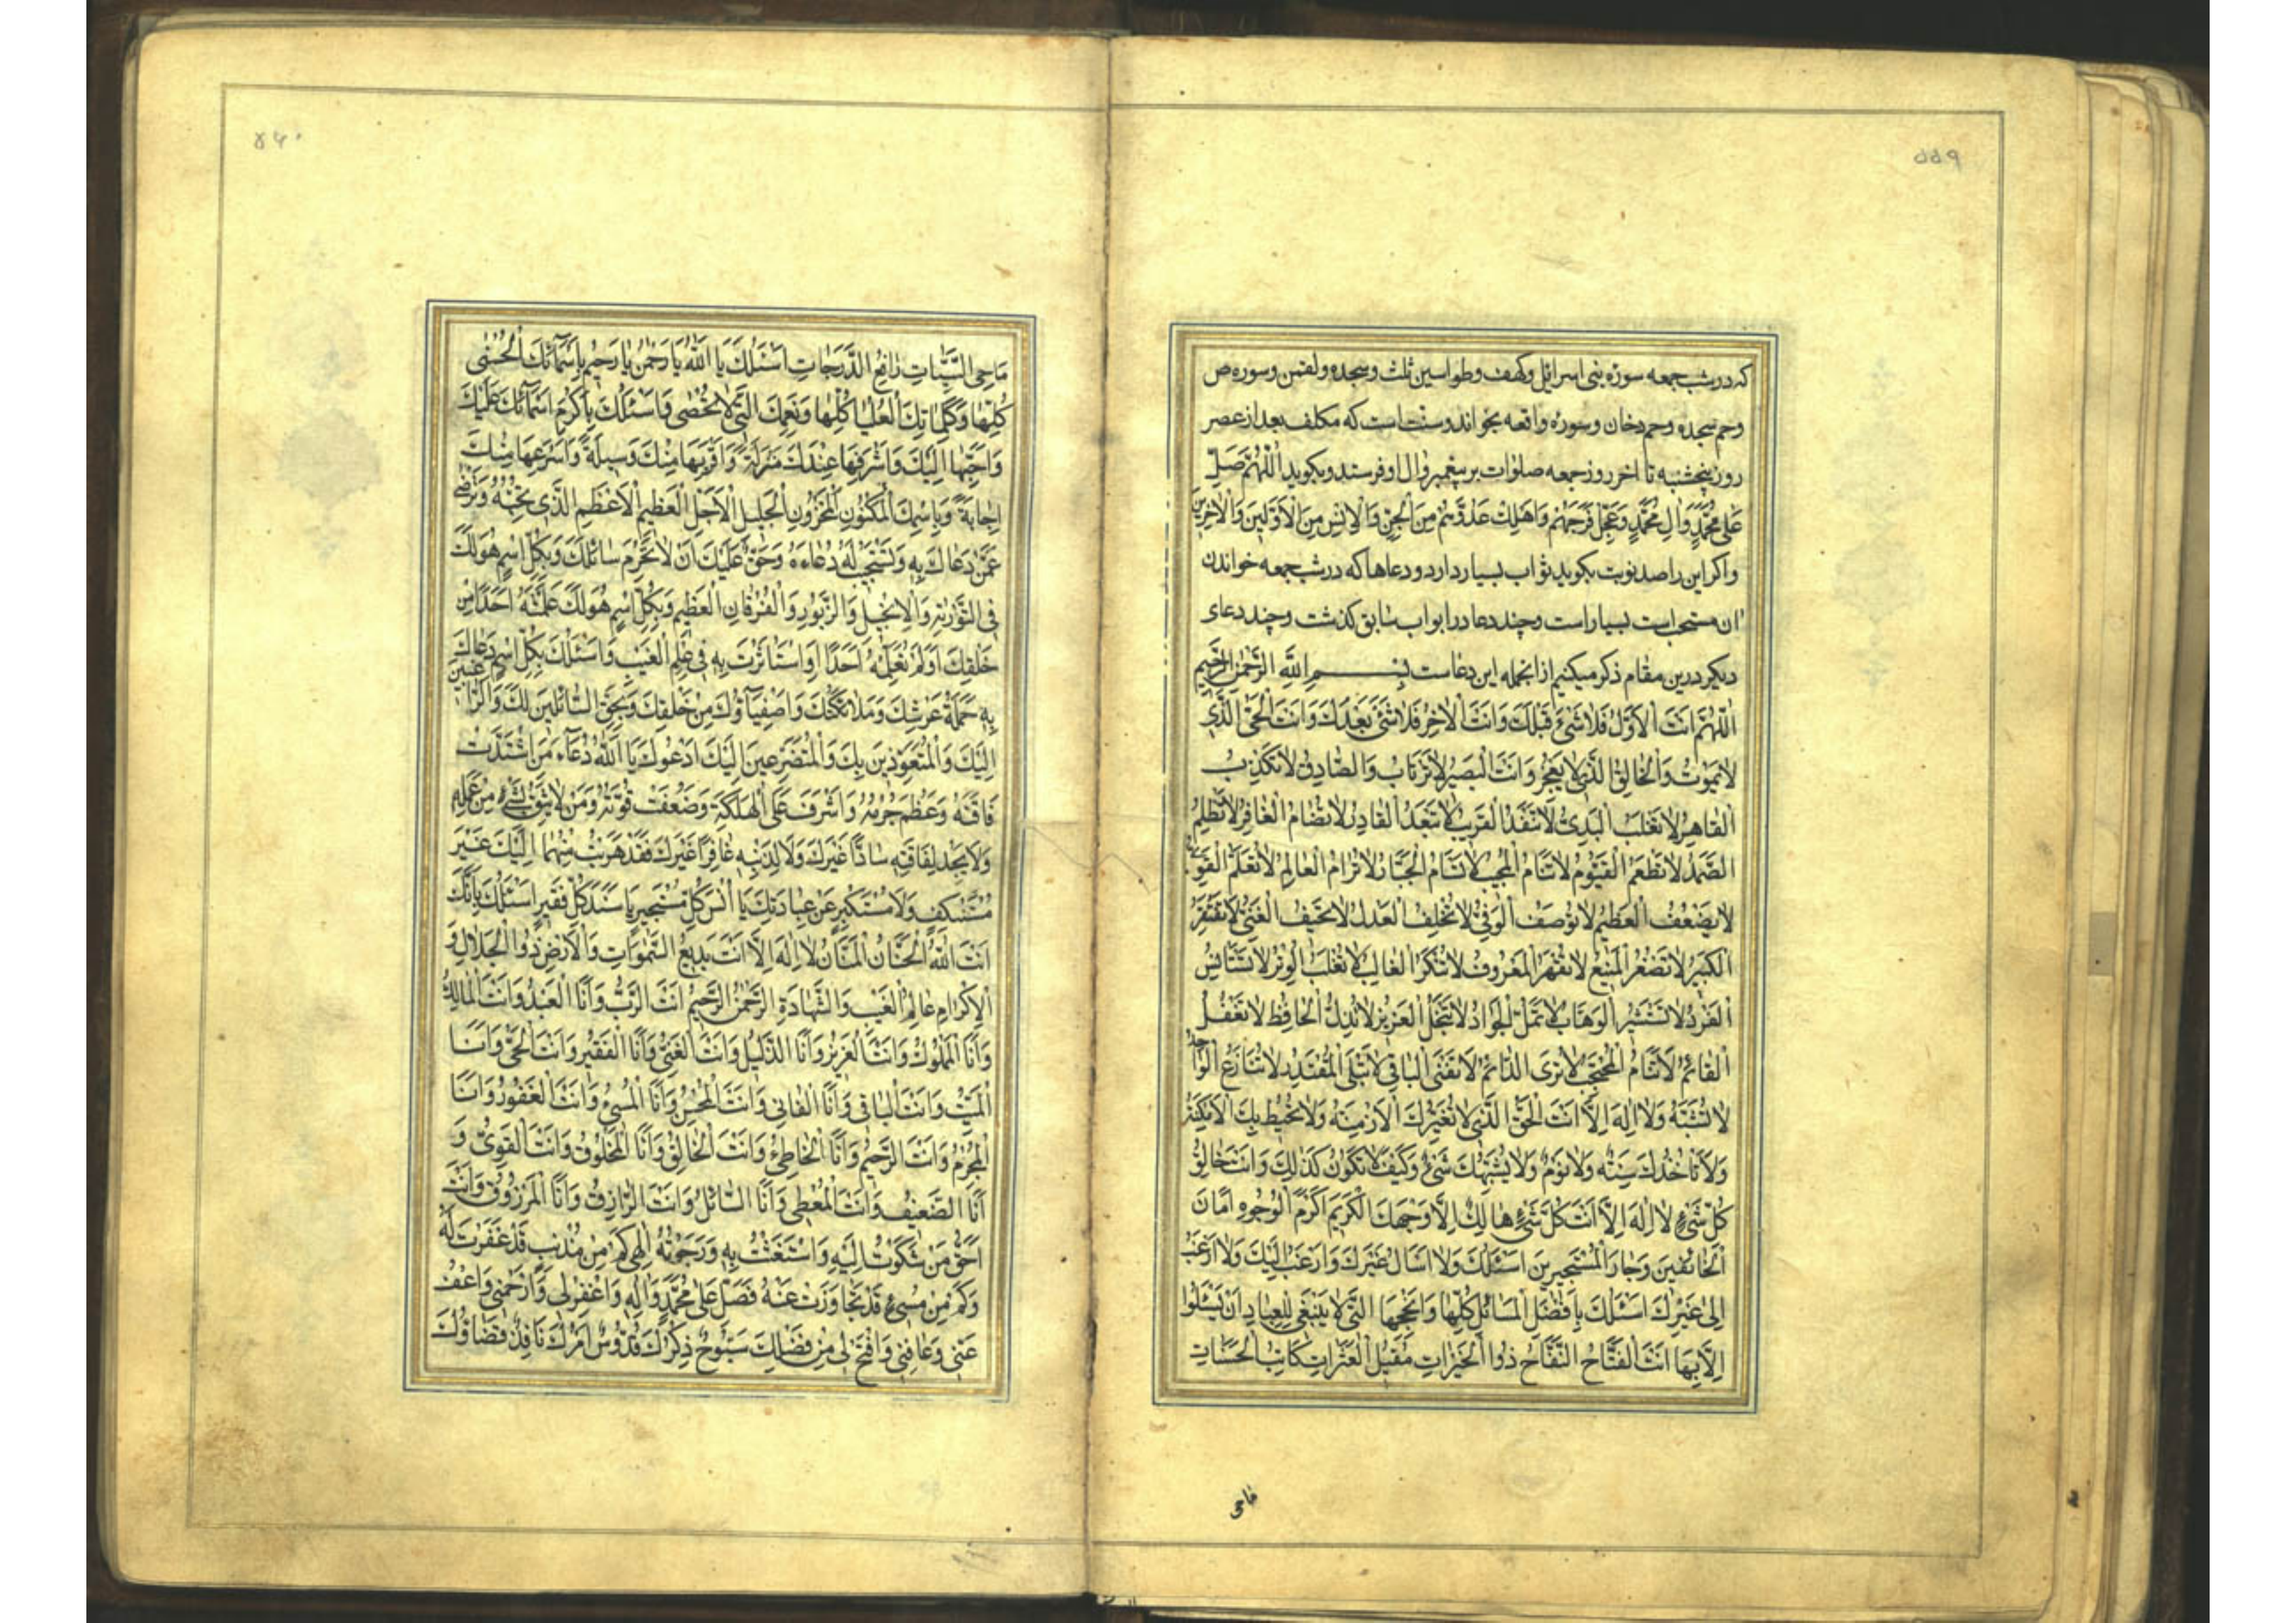 ۵۵۹
که در شب جمعه سوره بنی اسرائیل وکهف وطواسین ثلث وسجده ولقمن وسوره ص
وحم سجده وحم دخان وسوره واقعه بخواند وسنت است که مکلف بعد از عصر
روز پنجشنبه تا اخر روز جمعه صلوات بر پیغمبر وال او فرستد وبکوید اَللّٰهُمَّ صَلِّ
عَلىٰ مُحَمَّدٍ وَالِ مُحَمَّدٍ وَعَجِّلْ فَرَجَهُمْ وَاَهْلِكْ عَدُوَّهُمْ مِنَ الْجِنِّ وَالْاِنْسِ مِنَ الْاَوَّلِينَ وَالْاٰخِرِينَ
واکر این را صد نوبت بکوید ثواب بسیار دارد ودعاها که در شب جمعه خواندن
ان مستحب است بسیار است وچند دعا در ابواب سابق کذشت وچند دعای
دیکر درین مقام ذکر میکنیم از انجمله این دعاست بِسْمِ اللّٰهِ الرَّحْمٰنِ الرَّحِيمِ
اَللّٰهُمَّ اَنْتَ الْاَوَّلُ فَلَا شَىْءَ قَبْلَكَ وَاَنْتَ الْاٰخِرُ فَلَا شَىْءَ بَعْدَكَ وَاَنْتَ الْحَىُّ الَّذِى
لَا يَمُوتُ وَالْخَالِقُ الَّذِى لَا يَعْجِزُ وَاَنْتَ الْبَصِيرُ لَا تَرْتَابُ وَالصَّادِقُ لَا تَكْذِبُ
اَلْقَاهِرُ لَا تُغْلَبُ الْبَدِىءُ لَا تَنْفَدُ الْقَرِيبُ لَا تَبْعُدُ الْقَادِرُ لَا تُضَامُ الْغَافِرُ لَا تَظْلِمُ
الصَّمَدُ لَا تَطْعَمُ الْقَيُّومُ لَا تَنَامُ الْمُجِيبُ لَا تَسْاَمُ الْجَبَّارُ لَا تُرَامُ الْعَالِمُ لَا تُعَلَّمُ الْقَوِىُّ
لَا يَضْعُفُ الْعَظِيمُ لَا تُوصَفُ الْوَفِىُّ لَا تُخْلِفُ الْعَدْلُ لَا تَحِيفُ الْغَنِىُّ لَا تَفْتَقِرُ
الْكَبِيرُ لَا تَصْغُرُ الْمَنِيعُ لَا تُقْهَرُ الْمَعْرُوفُ لَا تُنْكَرُ الْغَالِبُ لَا تُغْلَبُ الْوِتْرُ لَا تَسْتَانِسُ
الْفَرْدُ لَا تَسْتَشِيرُ الْوَهَّابُ لَا تَمَلُّ الْجَوَادُ لَا تَبْخَلُ الْعَزِيزُ لَا تَذِلُّ الْحَافِظُ لَا تَغْفُلُ
الْقَائِمُ لَا تَنَامُ الْمُحْتَجِبُ لَا تُرىٰ الدَّائِمُ لَا تَفْنَى الْبَاقِى لَا تَبْلَى الْمُقْتَدِرُ لَا تُنَازَعُ الْوَاحِدُ
لَا تُشَبَّهُ وَلَا اِلٰهَ اِلَّا اَنْتَ الْحَقُّ الَّذِى لَا تُغَيِّرُكَ الْاَزْمِنَةُ وَلَا تُحِيطُ بِكَ الْاَمْكِنَةُ
وَلَا تَاْخُذُكَ سِنَةٌ وَلَا نَوْمٌ وَلَا يُشْبِهُكَ شَىْءٌ وَكَيْفَ لَا تَكُونُ كَذٰلِكَ وَاَنْتَ خَالِقُ
كُلِّ شَىْءٍ لَا اِلٰهَ اِلَّا اَنْتَ كُلُّ شَىْءٍ هَالِكٌ اِلَّا وَجْهَكَ الْكَرِيمَ اَكْرَمُ الْوُجُوهِ اَمَانَ
الْخَائِفِينَ وَجَارَ الْمُسْتَجِيرِينَ اَسْئَلُكَ وَلَا اَسْاَلُ غَيْرَكَ وَاَرْغَبُ اِلَيْكَ وَلَا اَرْغَبُ
اِلىٰ غَيْرِكَ اَسْئَلُكَ بِاَفْضَلِ الْمَسَائِلِ كُلِّهَا وَاَنْجَحِهَا الَّتِى لَا يَنْبَغِى لِلْعِبَادِ اَنْ يَسْئَلُوكَ
اِلَّا بِهَا اَنْتَ الْفَتَّاحُ النَّفَّاحُ ذُو الْخَيْرَاتِ مُقِيلُ الْعَثَرَاتِ كَاتِبُ الْحَسَنَاتِ
ماحی
۵۶۰
مَاحِى السَّيِّئَاتِ رَافِعُ الدَّرَجَاتِ اَسْئَلُكَ يَا اَللّٰهُ يَا رَحْمٰنُ يَا رَحِيمُ بِاَسْمَآئِكَ الْحُسْنىٰ
كُلِّهَا وَكَلِمَاتِكَ الْعُلْيَا كُلِّهَا وَنِعَمِكَ الَّتِى لَا تُحْصىٰ وَاَسْئَلُكَ بِاَكْرَمِ اَسْمَآئِكَ عَلَيْكَ
وَاَحَبِّهَا اِلَيْكَ وَاَشْرَفِهَا عِنْدَكَ مَنْزِلَةً وَاَقْرَبِهَا مِنْكَ وَسِيلَةً وَاَسْرَعِهَا مِنْكَ
اِجَابَةً وَبِاسْمِكَ الْمَكْنُونِ الْمَخْزُونِ الْجَلِيلِ الْاَجَلِّ الْعَظِيمِ الْاَعْظَمِ الَّذِى تُحِبُّهُ وَتَرْضىٰ
عَمَّنْ دَعَاكَ بِهِ وَتَسْتَجِيبُ لَهُ دُعَاءَهُ وَحَقٌّ عَلَيْكَ اَنْ لَا تَحْرِمَ سَائِلَكَ وَبِكُلِّ اسْمٍ هُوَ لَكَ
فِى التَّوْرٰيةِ وَالْاِنْجِيلِ وَالزَّبُورِ وَالْفُرْقَانِ الْعَظِيمِ وَبِكُلِّ اسْمٍ هُوَ لَكَ عَلَّمْتَهُ اَحَدًا مِنْ
خَلْقِكَ اَوْ لَمْ تُعَلِّمْهُ اَحَدًا اَوِ اسْتَاثَرْتَ بِهِ فِى عِلْمِ الْغَيْبِ وَاَسْئَلُكَ بِكُلِّ اسْمٍ دَعَاكَ
بِهِ حَمَلَةُ عَرْشِكَ وَمَلَائِكَتُكَ وَاَصْفِيَآؤُكَ مِنْ خَلْقِكَ وَبِحَقِّ السَّائِلِينَ لَكَ وَالرَّاغِبِينَ
اِلَيْكَ وَالْمُتَعَوِّذِينَ بِكَ وَالْمُتَضَرِّعِينَ اِلَيْكَ اَدْعُوكَ يَا اَللّٰهُ دُعَآءَ مَنِ اشْتَدَّتْ
فَاقَتُهُ وَعَظُمَ جُرْمُهُ وَاَشْرَفَ عَلَى الْهَلَكَةِ وَضَعُفَتْ قُوَّتُهُ وَمَنْ لَا يَثِقُ بِشَىْءٍ مِنْ عَمَلِهِ
وَلَا يَجِدُ لِفَاقَتِهِ سَادًّا غَيْرَكَ وَلَا لِذَنْبِهِ غَافِرًا غَيْرَكَ فَقَدْ هَرَبْتُ مِنْهُمَا اِلَيْكَ غَيْرَ
مُسْتَنْكِفٍ وَلَا مُسْتَكْبِرٍ عَنْ عِبَادَتِكَ يَا اُنْسَ كُلِّ مُسْتَجِيرٍ يَا سَنَدَ كُلِّ فَقِيرٍ اَسْئَلُكَ بِاَنَّكَ
اَنْتَ اللّٰهُ الْحَنَّانُ الْمَنَّانُ لَا اِلٰهَ اِلَّا اَنْتَ بَدِيعُ السَّمٰوَاتِ وَالْاَرْضِ ذُو الْجَلَالِ وَ
الْاِكْرَامِ عَالِمُ الْغَيْبِ وَالشَّهَادَةِ الرَّحْمٰنُ الرَّحِيمُ اَنْتَ الرَّبُّ وَاَنَا الْعَبْدُ وَاَنْتَ الْمَالِكُ
وَاَنَا الْمَمْلُوكُ وَاَنْتَ الْعَزِيزُ وَاَنَا الذَّلِيلُ وَاَنْتَ الْغَنِىُّ وَاَنَا الْفَقِيرُ وَاَنْتَ الْحَىُّ وَاَنَا
الْمَيِّتُ وَاَنْتَ الْبَاقِى وَاَنَا الْفَانِى وَاَنْتَ الْمُحْسِنُ وَاَنَا الْمُسِىءُ وَاَنْتَ الْغَفُورُ وَاَنَا
الْمُجْرِمُ وَاَنْتَ الرَّحِيمُ وَاَنَا الْخَاطِئُ وَاَنْتَ الْخَالِقُ وَاَنَا الْمَخْلُوقُ وَاَنْتَ الْقَوِىُّ وَ
اَنَا الضَّعِيفُ وَاَنْتَ الْمُعْطِى وَاَنَا السَّائِلُ وَاَنْتَ الرَّازِقُ وَاَنَا الْمَرْزُوقُ وَاَنْتَ
اَحَقُّ مَنْ شَكَوْتُ اِلَيْهِ وَاسْتَغَثْتُ بِهِ وَرَجَوْتُهُ اِلٰهِى كَمْ مِنْ مُذْنِبٍ قَدْ غَفَرْتَ لَهُ
وَكَمْ مِنْ مُسِىءٍ قَدْ تَجَاوَزْتَ عَنْهُ فَصَلِّ عَلىٰ مُحَمَّدٍ وَاٰلِهِ وَاغْفِرْ لِى وَارْحَمْنِى وَاعْفُ
عَنِّى وَعَافِنِى وَافْتَحْ لِى مِنْ فَضْلِكَ سُبُّوحٌ ذِكْرُكَ قُدُّوسٌ اَمْرُكَ نَافِذٌ قَضَاؤُكَ